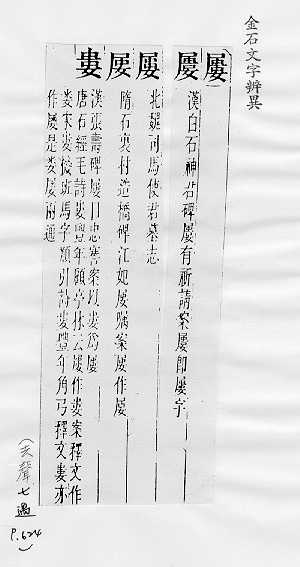 金石文字辨異
屢
屢 漢白石神君碑屢有祈請案屢即屢字
屢 北魏司馬使君墓志
屢 隋石裏村造橋碑江妃屢
案屢作屢
婁 漢張壽碑屢曰忠謇案以婁為屢
唐石經毛詩婁豐年顧亭林云屢作婁案釋文作
婁宋婁機班馬字類引詩婁豐年角弓釋文婁亦
作屢是婁屢兩通
(去聲七遇
P.624)